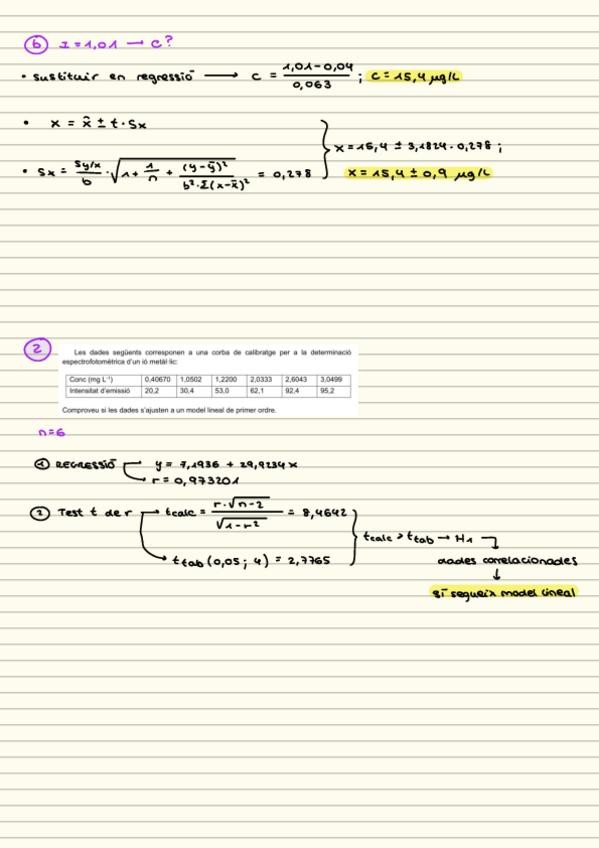 b I = 1,01 → c?
• sustituir en regressió → c = 1,01 - 0,04 / 0,063 ; c = 15,4 µg/L
• x = x̂ ± t · Sx
• Sx = Sy/x / b · √1 + 1/n + (y - ȳ)² / b² · Σ(x - x̄)² = 0,278
x = 15,4 ± 3,1824 · 0,278 ;
x = 15,4 ± 0,9 µg/L
2
Les dades següents corresponen a una corba de calibratge per a la determinació
espectrofotomètrica d'un ió metàl·lic:
Conc (mg L⁻¹) 0,40670 1,0502 1,2200 2,0333 2,6043 3,0499
Intensitat d'emissió 20,2 30,4 53,0 62,1 92,4 95,2
Comproveu si les dades s'ajusten a un model lineal de primer ordre.
n=6
1 REGRESSIÓ y = 7,1936 + 29,9234 x
r = 0,973201
2 Test t de r → tcalc = r · √n-2 / √1-r² = 8,4642
ttab (0,05 ; 4) = 2,7765
tcalc > ttab → H1
dades correlacionades
↓
sí segueix model lineal